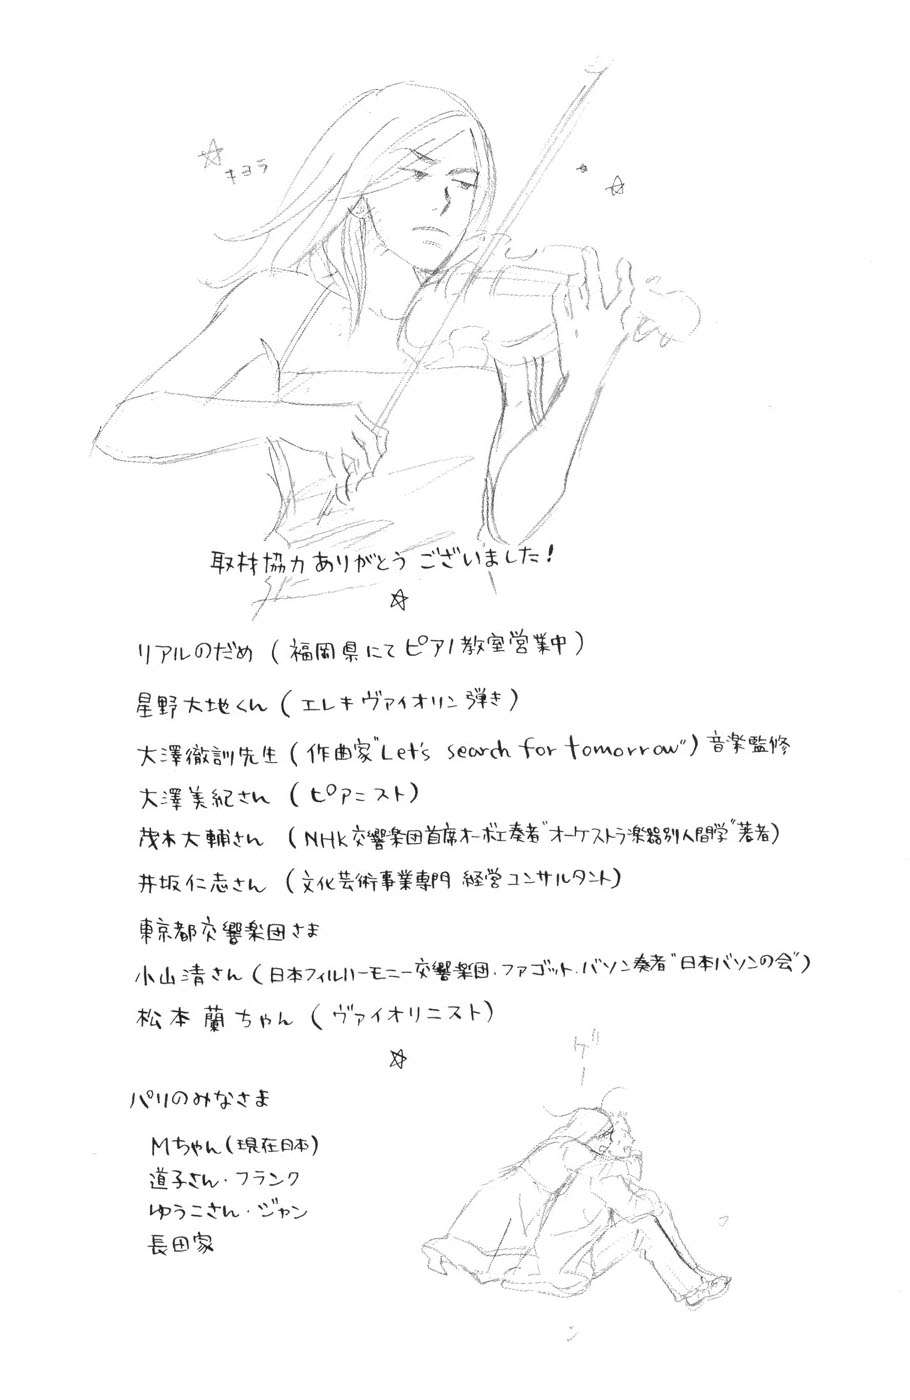 キヨラ
取材協力ありがとうございました!
リアルのだめ (福岡県にてピアノ教室営業中)
星野大地くん (エレキヴァイオリン弾き)
大澤徹訓先生 (作曲家"Let's search for tomorrow") 音楽監修
大澤美紀さん (ピアニスト)
茂木大輔さん (NHK交響楽団首席オーボエ奏者"オーケストラ楽器別人間学"著者)
井坂仁志さん (文化芸術事業専門 経営コンサルタント)
東京都交響楽団さま
小山清さん (日本フィルハーモニー交響楽団・ファゴット・バソン奏者"日本バソンの会")
松本蘭ちゃん (ヴァイオリニスト)
パリのみなさま
Mちゃん (現在日本)
道子さん・フランク
ゆうこさん・ジャン
長田家